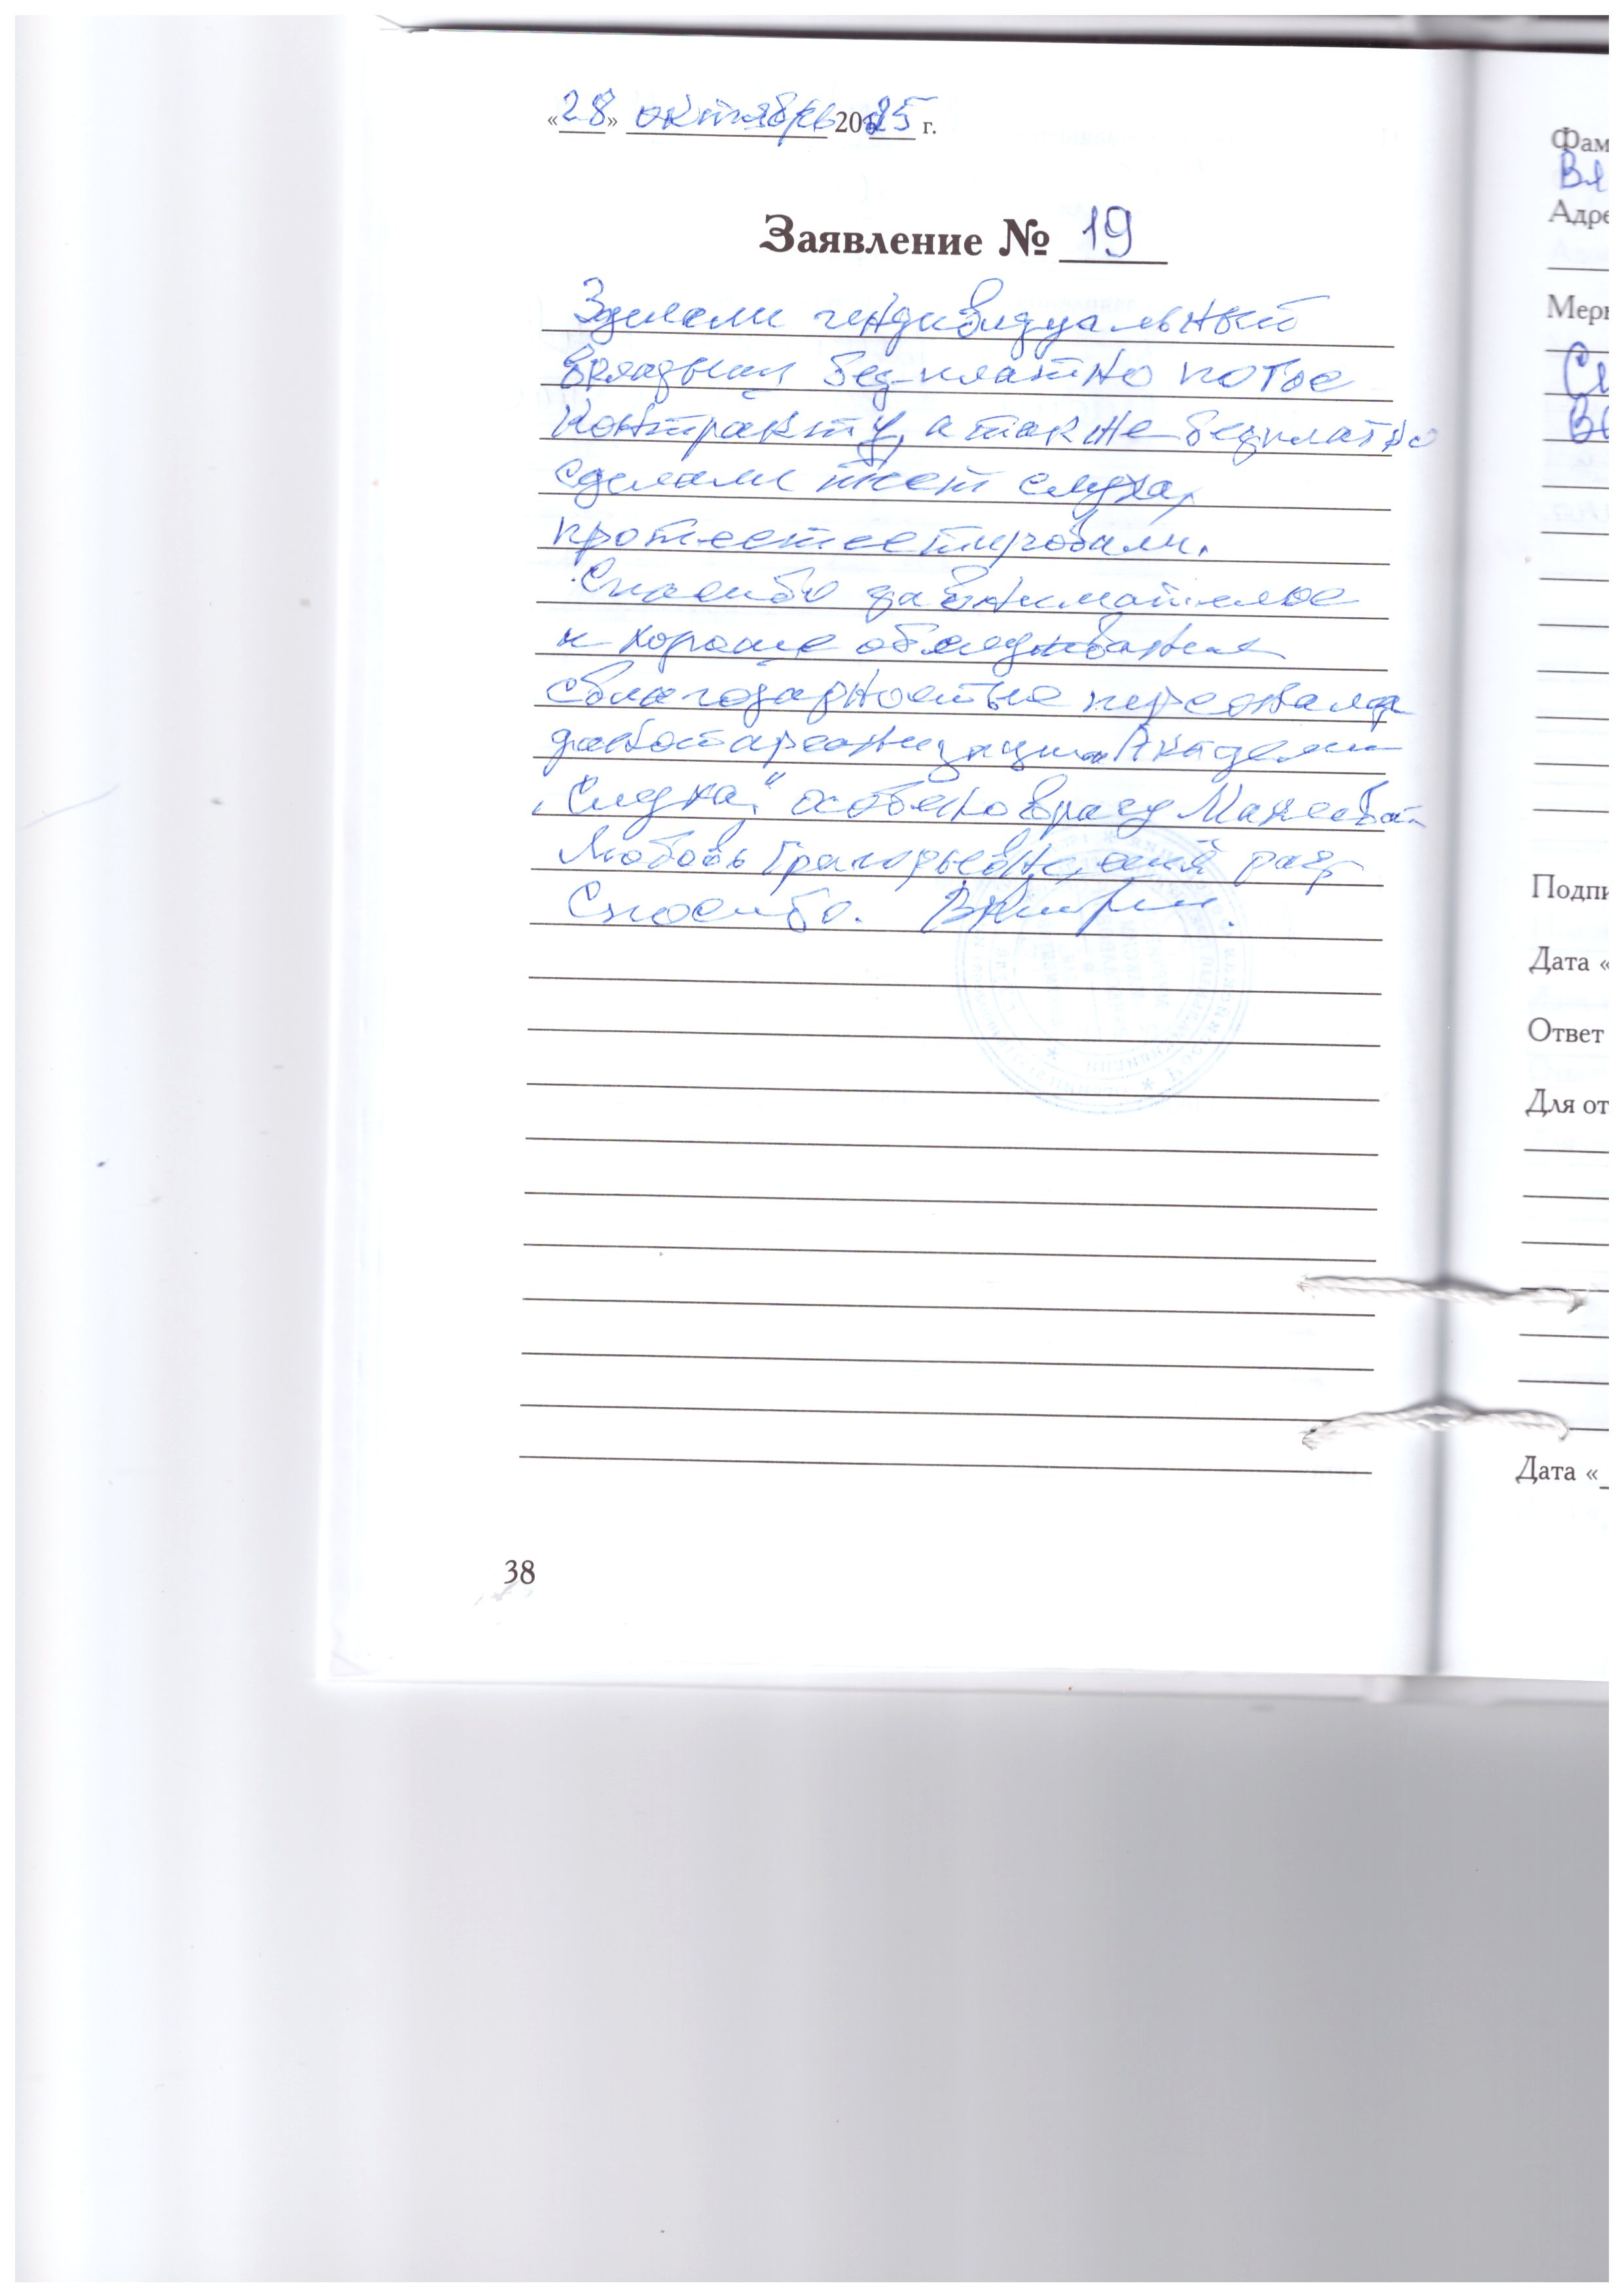 «28» октябрь 2025 г.
Заявление № 19
Зделали индивидуальный
вкладыш бесплатно по гос
контракту, а так же бесплатно
сделали тест слуха,
протестестировали.
Спасибо за внимателое
и хороше обследование
с благодарностью персонала
"Академи
Слуха," особено врачу
Любовь Григорьевне, ещё раз
Спасибо.
38
Фам
Вя
Адре
Мерь
Подпи
Дата «
Ответ
Для от
Дата «